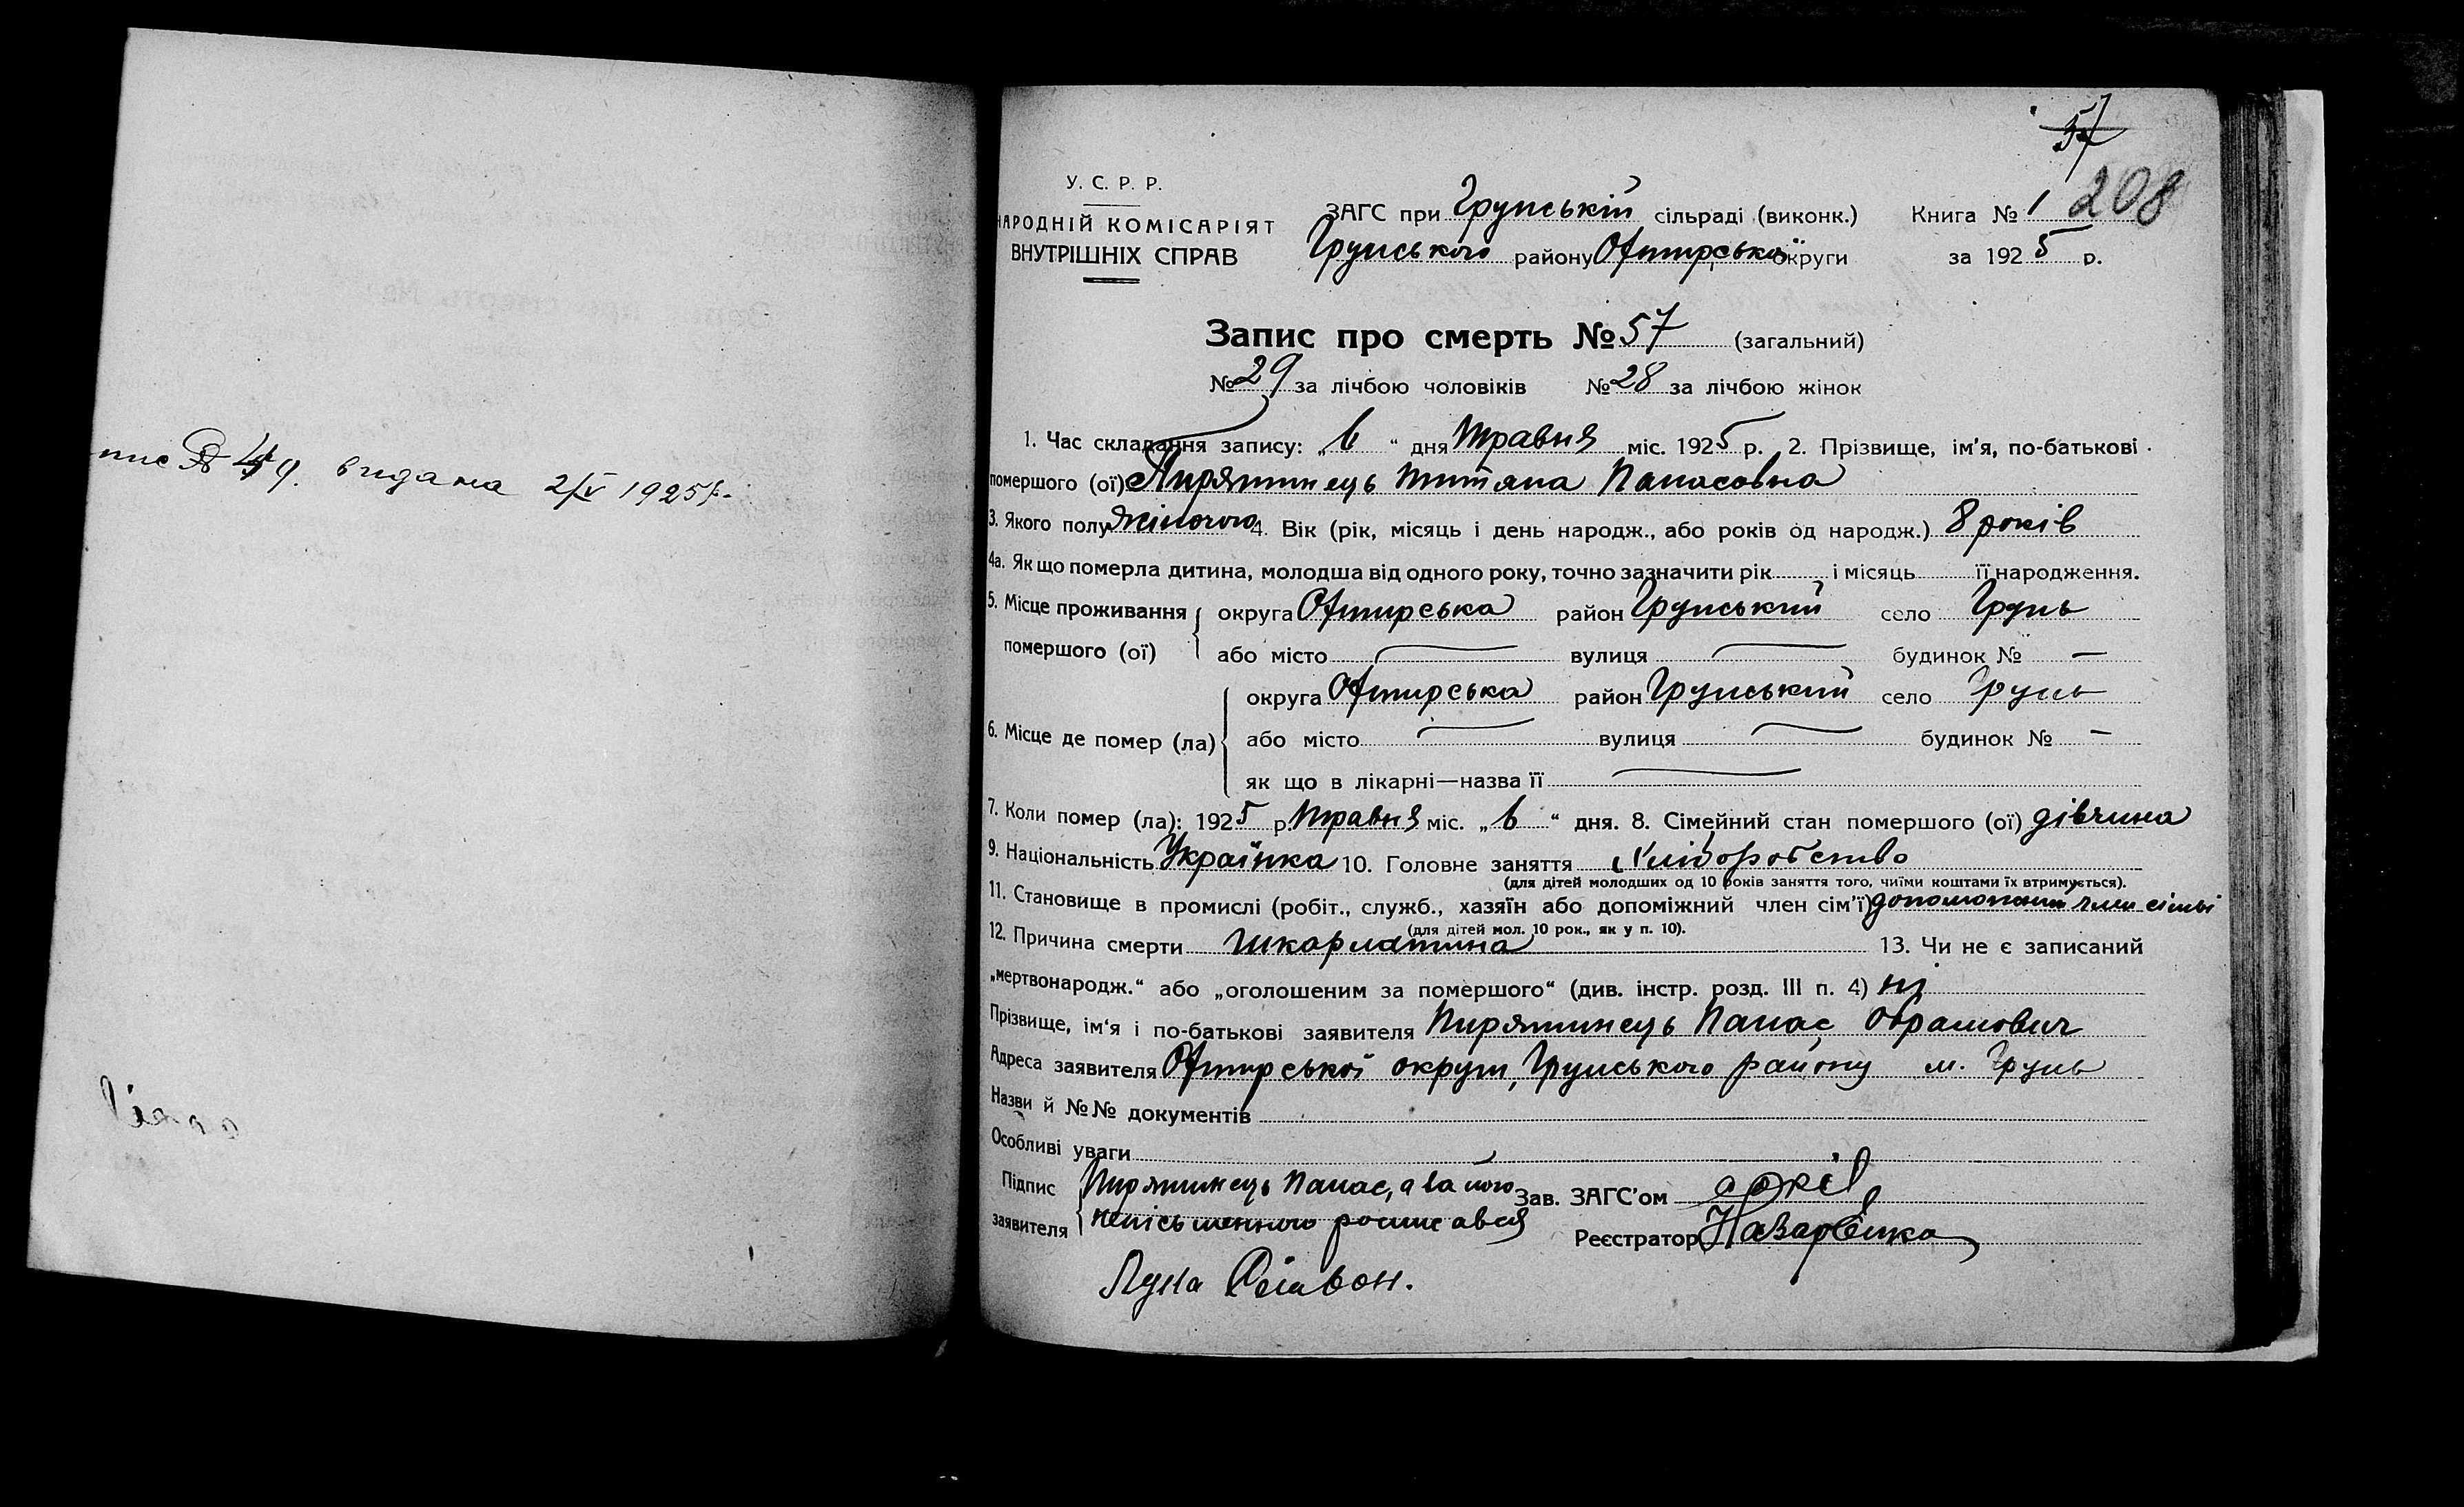 пис № 49. видана 2/V 1925 р.
57
208
У. С. Р. Р.
НАРОДНІЙ КОМІСАРІЯТ
ВНУТРІШНІХ СПРАВ
ЗАГС при Грунській сільраді (виконк.) Книга № 1
Грунського району Охтирської округи за 1925 р.
Запис про смерть № 57 (загальний)
№ 29 за лічбою чоловіків № 28 за лічбою жінок
1. Час складання запису: „6“ дня Травня міс. 1925 р. 2. Прізвище, ім'я, по-батькові
помершого (ої) Пирятинець Титяна Панасовна
3. Якого полу Жіночого 4. Вік (рік, місяць і день народж., або років од народж.) 8 років
4а. Як що померла дитина, молодша від одного року, точно зазначити рік і місяць її народження.
5. Місце проживання помершого (ої) округа Охтирська район Грунський село Грунь
або місто — вулиця — будинок № —
6. Місце де помер (ла) округа Охтирська район Грунський село Грунь
або місто — вулиця — будинок № —
як що в лікарні—назва її —
7. Коли помер (ла): 1925 р. Травня міс. „6“ дня. 8. Сімейний стан помершого (ої) дівчина
9. Національність Українка 10. Головне заняття Хліборобство
(для дітей молодших од 10 років заняття того, чиїми коштами їх втримується).
11. Становище в промислі (робіт., служб., хазяїн або допоміжний член сім'ї) допоможний член сімьі
(для дітей мол. 10 рок., як у п. 10).
12. Причина смерти шкарлатина 13. Чи не є записаний
„мертвонародж.“ або „оголошеним за помершого“ (див. інстр. розд. III п. 4) ні
Прізвище, ім'я і по-батькові заявителя Пирятинець Панас Обрамович
Адреса заявителя Охтирської округи, Грунського району м. Грунь
Назви й №№ документів
Особливі уваги
Підпис заявителя Пирятинець Панас, а за його
непісьменного росписався
Зав. ЗАГС'ом
Реєстратор Назаренко